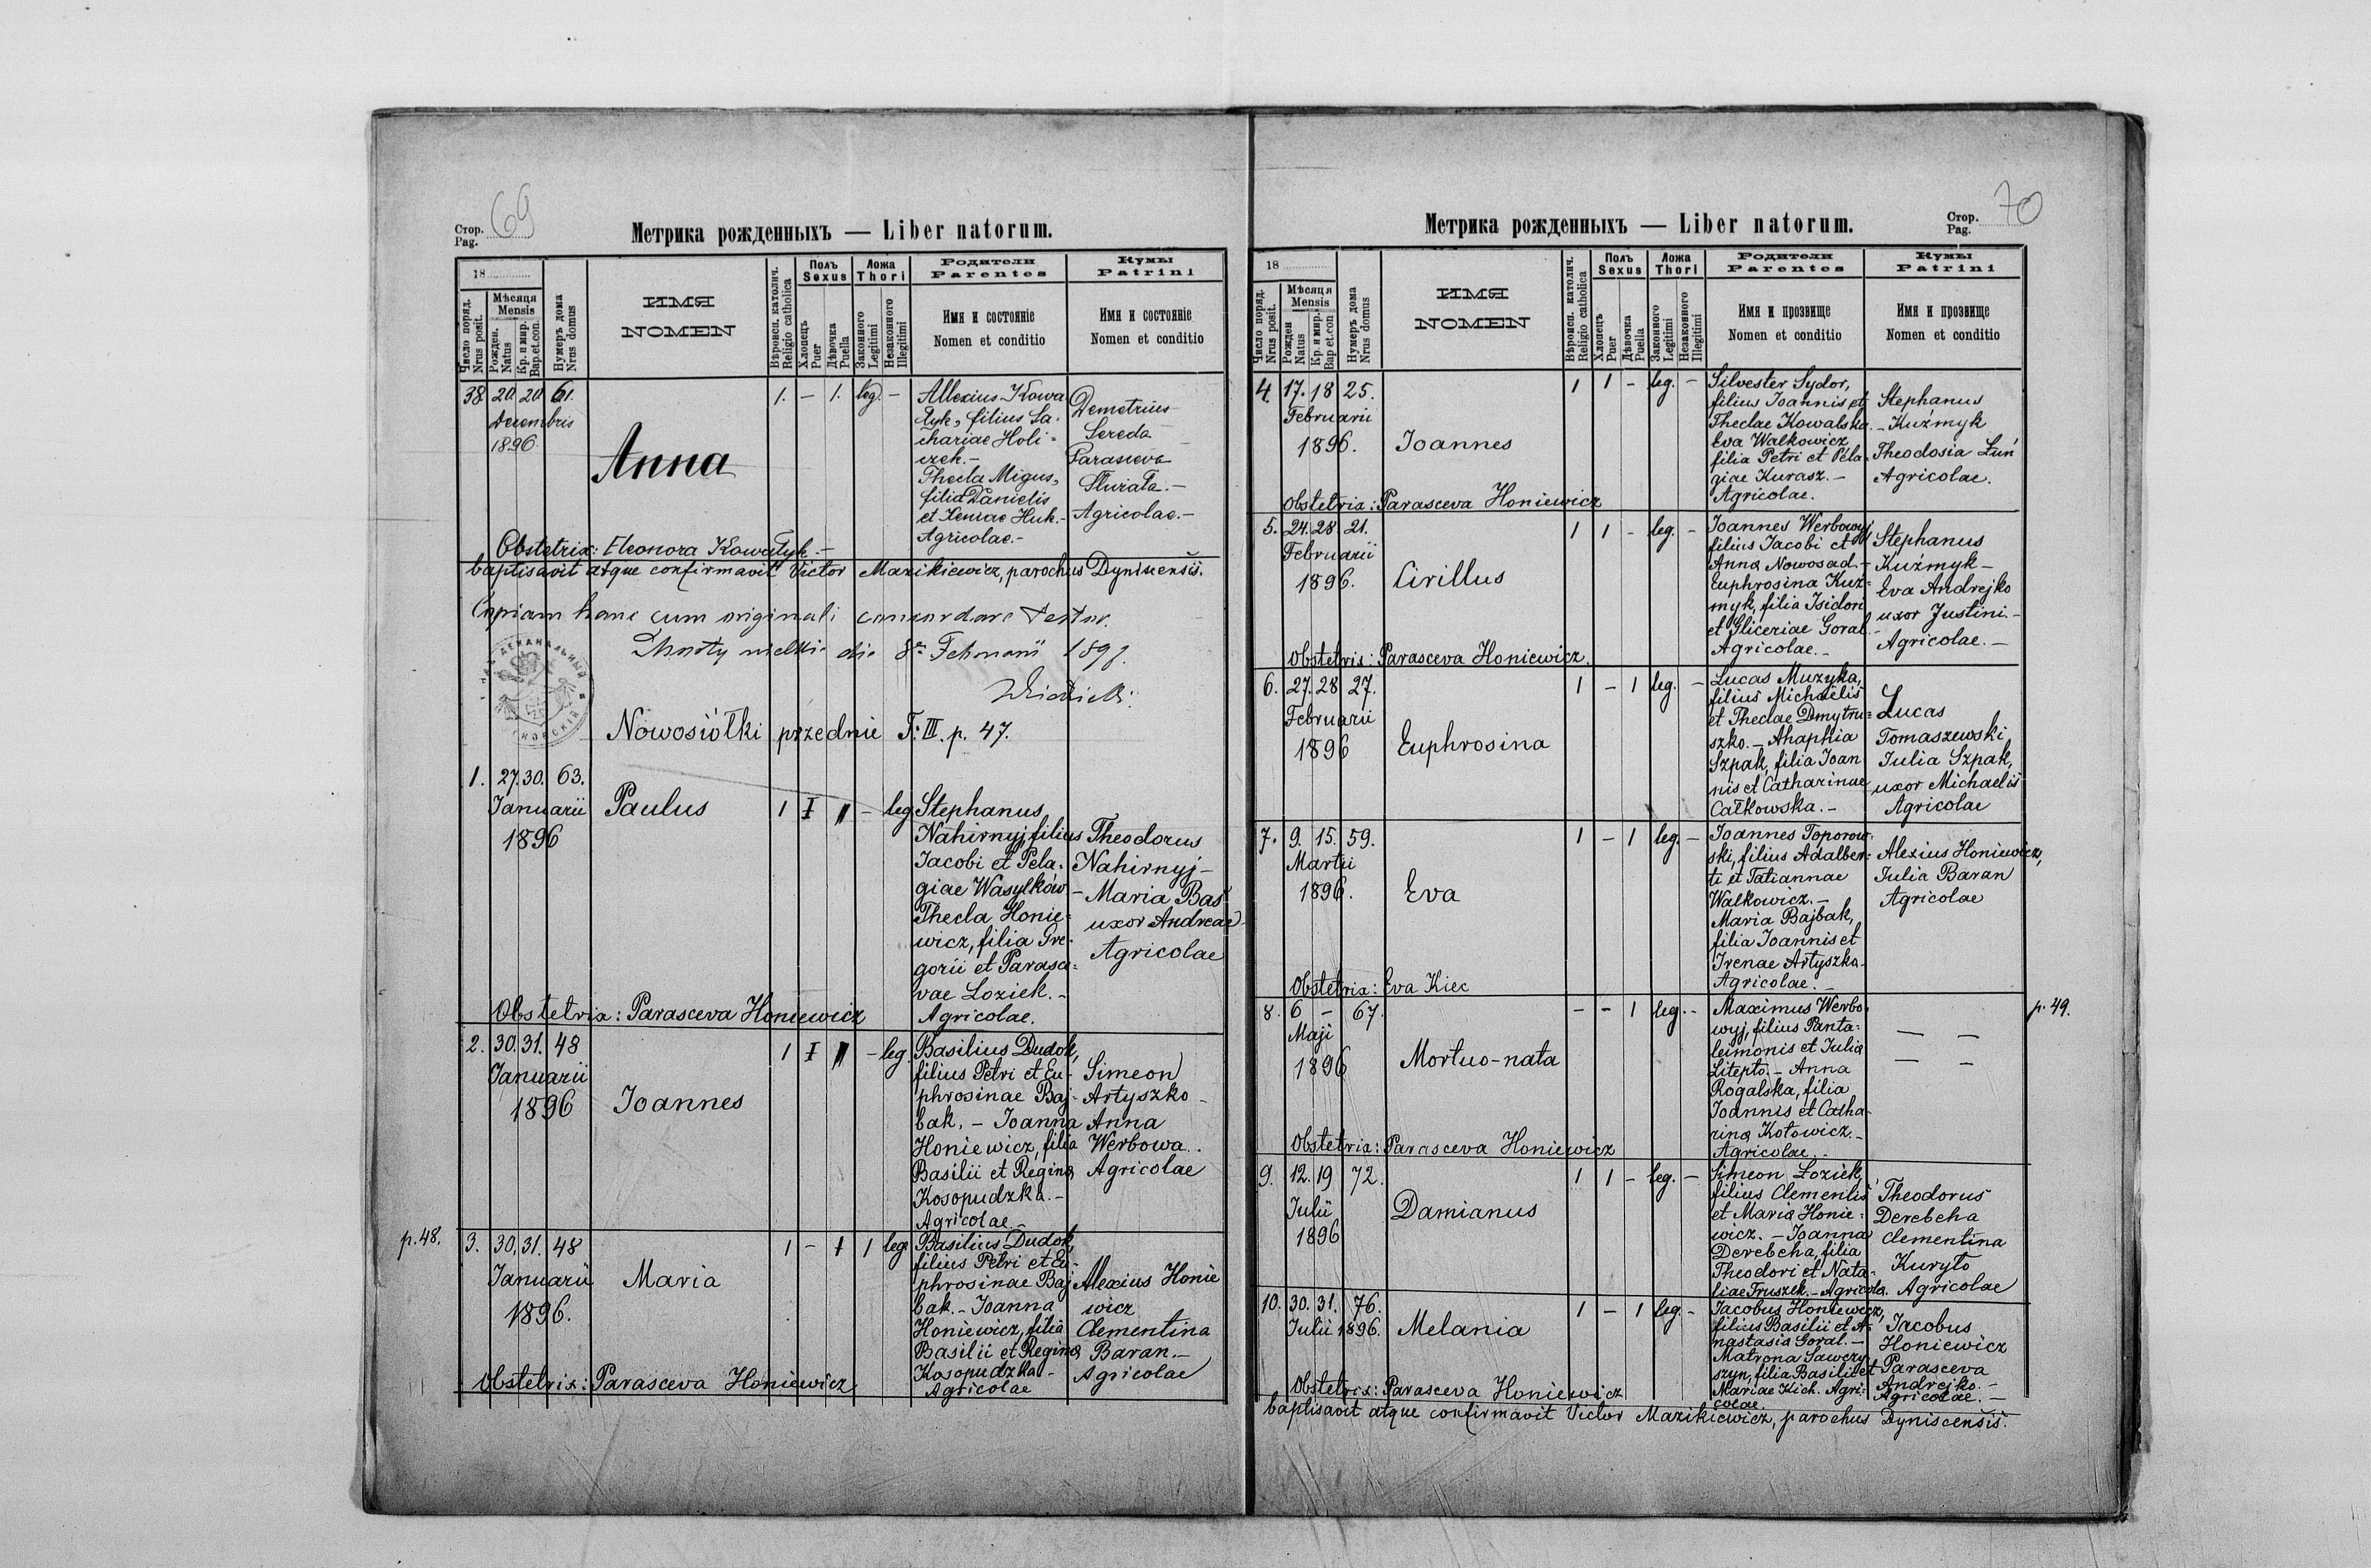 Стор.
Pag.
69
Метрика рожденныхъ — Liber natorum.
18
Число поряд.
Nrus posit.
Мѣсяця
Mensis
Рожден.
Natus
Кр. и мир.
Bap.et.con.
Нумеръ дома
Nrus domus
ИМЯ
NOMEN
Вѣроисп. католич.
Religio catholica
Полъ
Sexus
Хлопецъ
Puer
Дѣвочка
Puella
Ложа
Thori
Законного
Legitimi
Незаконного
Illegitimi
Родители
Parentes
Имя и состоянiе
Nomen et conditio
Кумы
Patrini
Имя и состоянiе
Nomen et conditio
38 20. 20 61.
Decembris
1896.
Anna
1. – 1. leg. –
Allexius Kowa
łyk, filius Za-
chariae Holi=
czek.–
Thecla Migus,
filia Danielis
et Xeniae Huk.–
Agricolae.–
Demetrius
Sereda
Parasceva
Agricolae.–
Obstetrix: Eleonora Kowałyk.–
baptisavit atque confirmavit Victor Mazikiewicz, parochus
Copiam hanc cum originali concordare testor.
die 8
Nowosiółki przednie T: III. p. 47.
1. 27. 30. 63.
Januarii
1896
Paulus
1 I 1 – leg
Stephanus
Nahirnyj, filius
Jacobi et Pela-
giae Wasylków –
Thecla Honie=
wicz, filia Gre-
gorii et Parasce=
vae Loziek.–
Agricolae.
Theodorus
Nahirnyj –
Maria Baś
uxor Andreae
Agricolae
Obstetrix: Parasceva Honiewicz
2. 30. 31. 48
Januarii
1896
Joannes
1 I 1 – leg.
Basilius Dudok,
filius Petri et Eu-
phrosinae Baj-
bak. – Joanna
Honiewicz, filia
Basilii et Regina
Kosopudzka.–
Agricolae.–
Simeon
Artyszko –
Anna
Werbowa.
Agricolae
p. 48.
3. 30. 31. 48
Januarii
1896.
Maria
1 – 1 1 leg.
Basilius Dudok,
filius Petri et Eu-
phrosinae Baj
bak. – Joanna
Honiewicz, filia
Basilii et Regina
Kosopudzka –
Agricolae
Alexius Honie
wicz
Clementina
Baran.–
Agricolae
Obstetrix: Parasceva Honiewicz
Метрика рожденныхъ — Liber natorum.
Стор.
Pag.
70
18
Число поряд.
Nrus posit.
Мѣсяця
Mensis
Рожден
Natus
Кр. и мир.
Bap.et.con
Нумеръ дома
Nrus domus
ИМЯ
NOMEN
Вѣроисп. католич.
Religio catholica
Полъ
Sexus
Хлопецъ
Puer
Дѣвочка
Puella
Ложа
Thori
Законного
Legitimi
Незаконного
Illegitimi
Родители
Parentes
Имя и прозвище
Nomen et conditio
Кумы
Patrini
Имя и прозвище
Nomen et conditio
4. 17. 18 25.
Februarii
1896.
Joannes
1 1 – leg. –
Silvester Sydor,
filius Joannis et
Theclae Kowalska
Eva Walkowicz
filia Petri et Pela-
giae Kurasz.–
Agricolae.
Stephanus
– Kuźmyk
Theodosia Luń
Agricolae.
Obstetrix: Parasceva Honiewicz
5. 24. 28. 21.
Februarii
1896.
Cirillus
1 1 – leg. –
Joannes Werbowyj
filius Jacobi et
Anna Nowosad.–
Euphrosina Kuź=
myk, filia Isidori
et Gliceriae Goral.–
Agricolae.–
Stephanus
Kuźmyk –
Eva Andrejko
uxor Justini.–
Agricolae.–
Obstetrix: Parasceva Honiewicz.
6. 27. 28 27.
Februarii
1896
Euphrosina
1 – 1 leg. –
Lucas Muzyka,
filius Michaelis
et Theclae Dmytru=
szko. – Ahaphia
Szpak, filia Joan
nis et Catharinae
Całkowska.–
Lucas
Tomaszewski
Julia Szpak,
uxor Michaelis
Agricolae
7. 9. 15. 59.
Martii
1896.
Eva
1 – 1 leg. –
Joannes Toporow=
ski, filius Adalber=
ti et Tatiannae
Walkowicz.–
Maria Bajbak,
filia Joannis et
Irenae Artyszko –
Agricolae.–
Alexius Honiewicz,
Julia Baran
Agricolae
Obstetrix: Eva Kiec
8. 6 – 67.
Maji
1896
Mortuo-nata
– – 1 leg. –
Maximus Werbo-
wyj, filius Panta=
leimonis et Julia
Litepło. – Anna
Rogalska, filia
Joannis et Catha-
rina Kotowicz.–
Agricolae.–
— —
— —
p. 49.
Obstetrix: Parasceva Honiewicz
9. 12. 19 72.
Julii
1896
Damianus
1 1 – leg. –
Simeon Łoziek,
filius Clementis
et Maria Honie=
wicz. – Joanna
Derebcha, filia
Theodori et Nata-
liae Truszek. – Agricola.
Theodorus
Derebcha
Clementina
Kuryło
Agricolae
10. 30. 31. 76.
Julii 1896.
Melania
1 – 1 leg. –
Jacobus Honiewicz,
filius Basilii et A=
nastasia Goral.–
Matrona Sawczy
szyn, filia Basilii et
Mariae Kich. Agri=
colae.
Jacobus
Honiewicz
Parasceva
Andrejko.–
Agricolae.–
Obstetrix: Parasceva Honiewicz
baptisavit atque confirmavit Victor Mazikiewicz, parochus Dyniscensis.